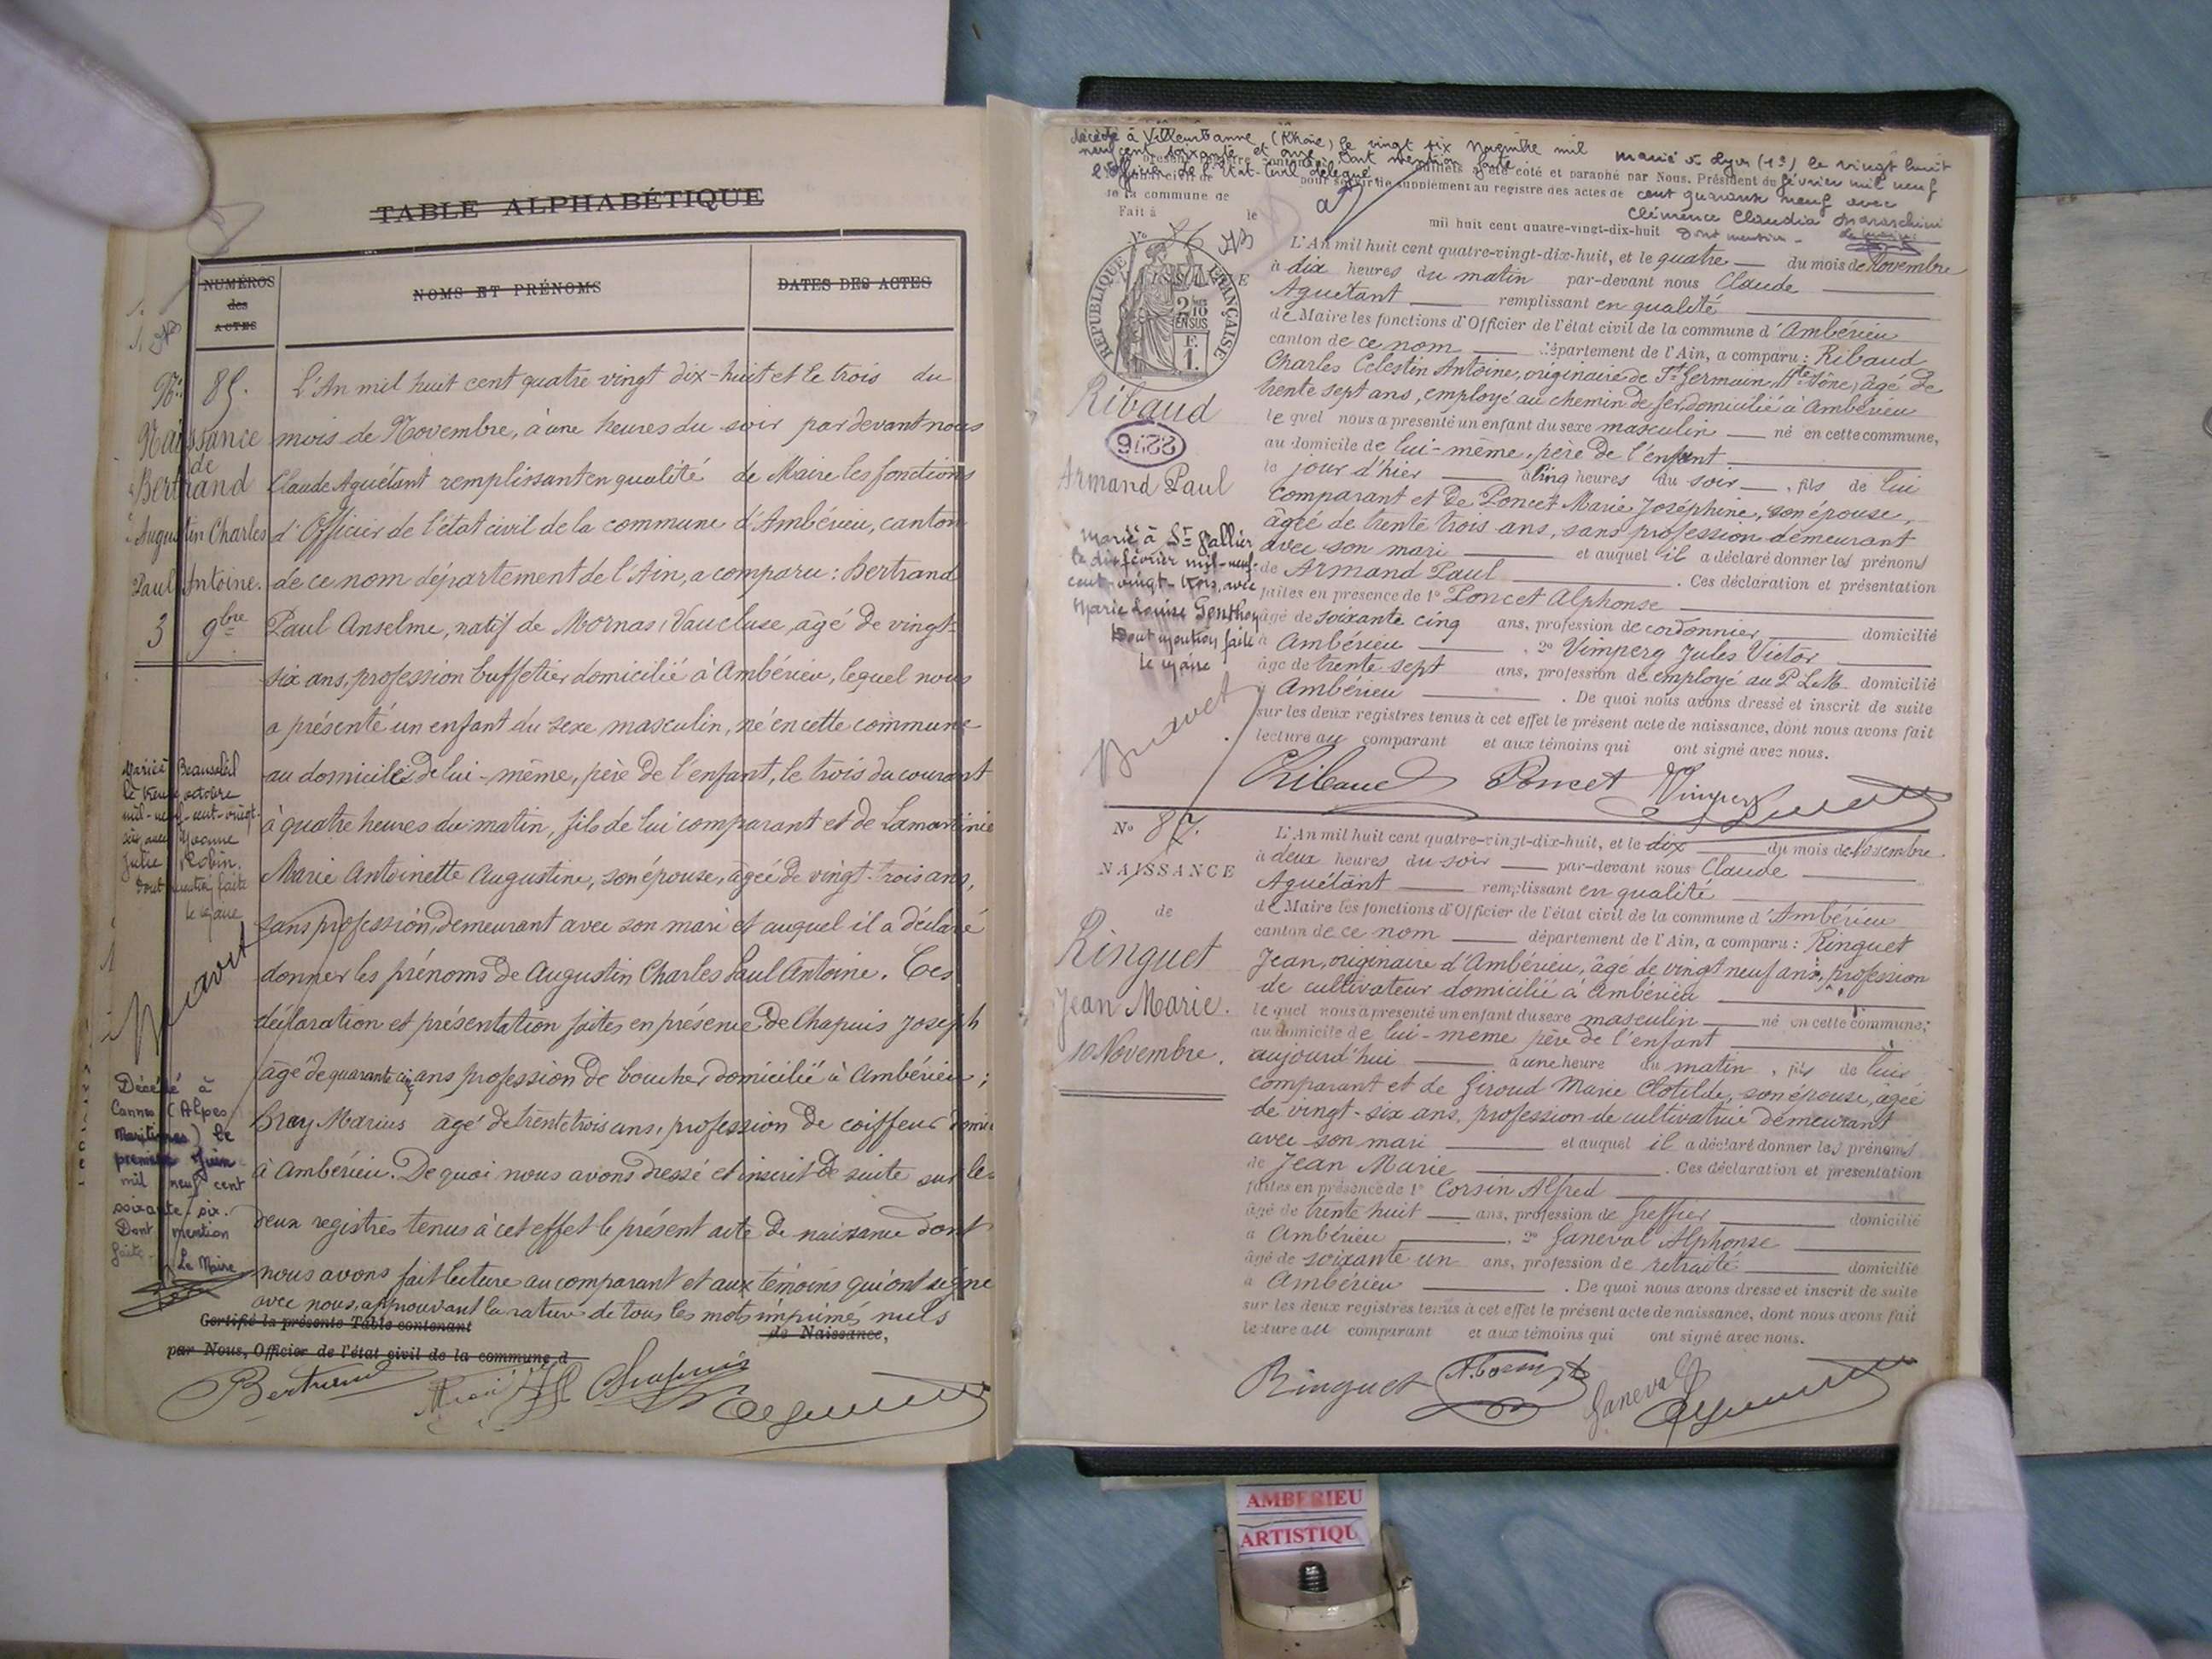 TABLE ALPHABÉTIQUE
NUMÉROS
des
ACTES
NOMS ET PRÉNOMS
DATES DES ACTES
No 85.
Naissance
de
Bertrand
Augustin Charles
Paul Antoine.
3 9bre
L'An mil huit cent quatre vingt dix-huit et le trois du
mois de Novembre, à une heures du soir par devant nous
Claude Aguétant remplissant en qualité de Maire les fonctions
d'Officier de l'état civil de la commune d'Ambérieu, canton
de ce nom département de l'Ain, a comparu : Bertrand
Paul Anselme, natif de Mornas, Vaucluse, âgé de vingt-
six ans, profession buffetier domicilié à Ambérieu, lequel nous
a présenté un enfant du sexe masculin, né en cette commune
au domicile de lui-même, père de l'enfant, le trois du courant
à quatre heures du matin, fils de lui comparant et de Lamartinie
Marie Antoinette Augustine, son épouse, âgée de vingt-trois ans,
sans profession, demeurant avec son mari et auquel il a déclaré
donner les prénoms de Augustin Charles Paul Antoine. Ces
déclaration et présentation faites en présence de Chapuis Joseph
âgé de quarante cinq ans profession de boucher domicilié à Ambérieu ;
Bray Marius âgé de trente trois ans, profession de coiffeur domi
à Ambérieu. De quoi nous avons dressé et inscrit de suite sur les
deux registres tenus à cet effet le présent acte de naissance dont
nous avons fait lecture au comparant et aux témoins qui ont signé
avec nous, approuvant la rature de tous les mots imprimés nuls
Certifié la présente Table contenant
de Naissance,
par Nous, Officier de l'état civil de la commune d
Marié à Beausoleil
le octobre
mil-neuf-cent-vingt-
six avec Yvonne
Julie Robin.
dont mention faite
le maire
Décédé à
Cannes (Alpes
Maritimes) le
premier Juin
mil neuf cent
soixante-six.
Dont mention
faite.
Le Maire
Bertrand
Chapuis
décédé à Villeurbanne (Rhône) le vingt six Novembre mil
neuf cent soixante et onze. Dont mention faite
l'Officier de l'Etat-Civil délégué.
marié à Lyon (1e) le vingt huit
février mil neuf
cent quarante neuf avec
Clémence Claudia Maraschini
Dont mention -
feuillets a été coté et paraphé par Nous, Président du
pour servir de supplément au registre des actes de
de la commune de
Fait à le
mil huit cent quatre-vingt-dix-huit
No 86
RÉPUBLIQUE FRANÇAISE
2/10
EN SUS
F.
1.
Ribaud
2276
Armand Paul
Marié à St Vallier
le dix février mil-neuf-
cent-vingt-trois, avec
Marie Louise Gonthey
Dont mention faite
le maire
L'An mil huit cent quatre-vingt-dix-huit, et le quatre du mois de Novembre
à dix heures du matin par-devant nous Claude
Aguétant remplissant en qualité
de Maire les fonctions d'Officier de l'état civil de la commune d'Ambérieu
canton de ce nom département de l'Ain, a comparu : Ribaud
Charles Celestin Antoine, originaire de St Germain, Hte Sône, âgé de
trente sept ans, employé au chemin de fer, domicilié à Ambérieu
le quel nous a présenté un enfant du sexe masculin né en cette commune,
au domicile de lui-même, père de l'enfant
le jour d'hier à cinq heures du soir, fils de lui
comparant et de Poncet Marie Joséphine, son épouse,
âgée de trente trois ans, sans profession demeurant
avec son mari et auquel il a déclaré donner les prénoms
de Armand Paul. Ces déclaration et présentation
faites en présence de 1o Poncet Alphonse
âgé de soixante cinq ans, profession de cordonnier domicilié
à Ambérieu, 2o Vimperg Jules Victor
âgé de trente sept ans, profession de employé au P.L.M. domicilié
à Ambérieu. De quoi nous avons dressé et inscrit de suite
sur les deux registres tenus à cet effet le présent acte de naissance, dont nous avons fait
lecture au comparant et aux témoins qui ont signé avec nous.
Ribaud Poncet Vimperg
No 87.
NAISSANCE
de
Ringuet
Jean Marie.
10 Novembre.
L'An mil huit cent quatre-vingt-dix-huit, et le dix du mois de Novembre
à deux heures du soir par-devant nous Claude
Aguétant remplissant en qualité
de Maire les fonctions d'Officier de l'état civil de la commune d'Ambérieu
canton de ce nom département de l'Ain, a comparu : Ringuet
Jean, originaire d'Ambérieu, âgé de vingt neuf ans, profession
de cultivateur domicilié à Ambérieu
le quel nous a présenté un enfant du sexe masculin né en cette commune,
au domicile de lui-même père de l'enfant
aujourd'hui à une heure du matin, fils de lui
comparant et de Giroud Marie Clotilde, son épouse, âgée
de vingt-six ans, profession de cultivatrice demeurant
avec son mari et auquel il a déclaré donner les prénoms
de Jean Marie. Ces déclaration et présentation
faites en présence de 1o Corsin Alfred
âgé de trente huit ans, profession de Greffier domicilié
à Ambérieu, 2o Ganeval Alphonse
âgé de soixante un ans, profession de retraité domicilié
à Ambérieu. De quoi nous avons dressé et inscrit de suite
sur les deux registres tenus à cet effet le présent acte de naissance, dont nous avons fait
lecture au comparant et aux témoins qui ont signé avec nous.
Ringuet A. Corsin Ganeval
AMBERIEU
ARTISTIQU